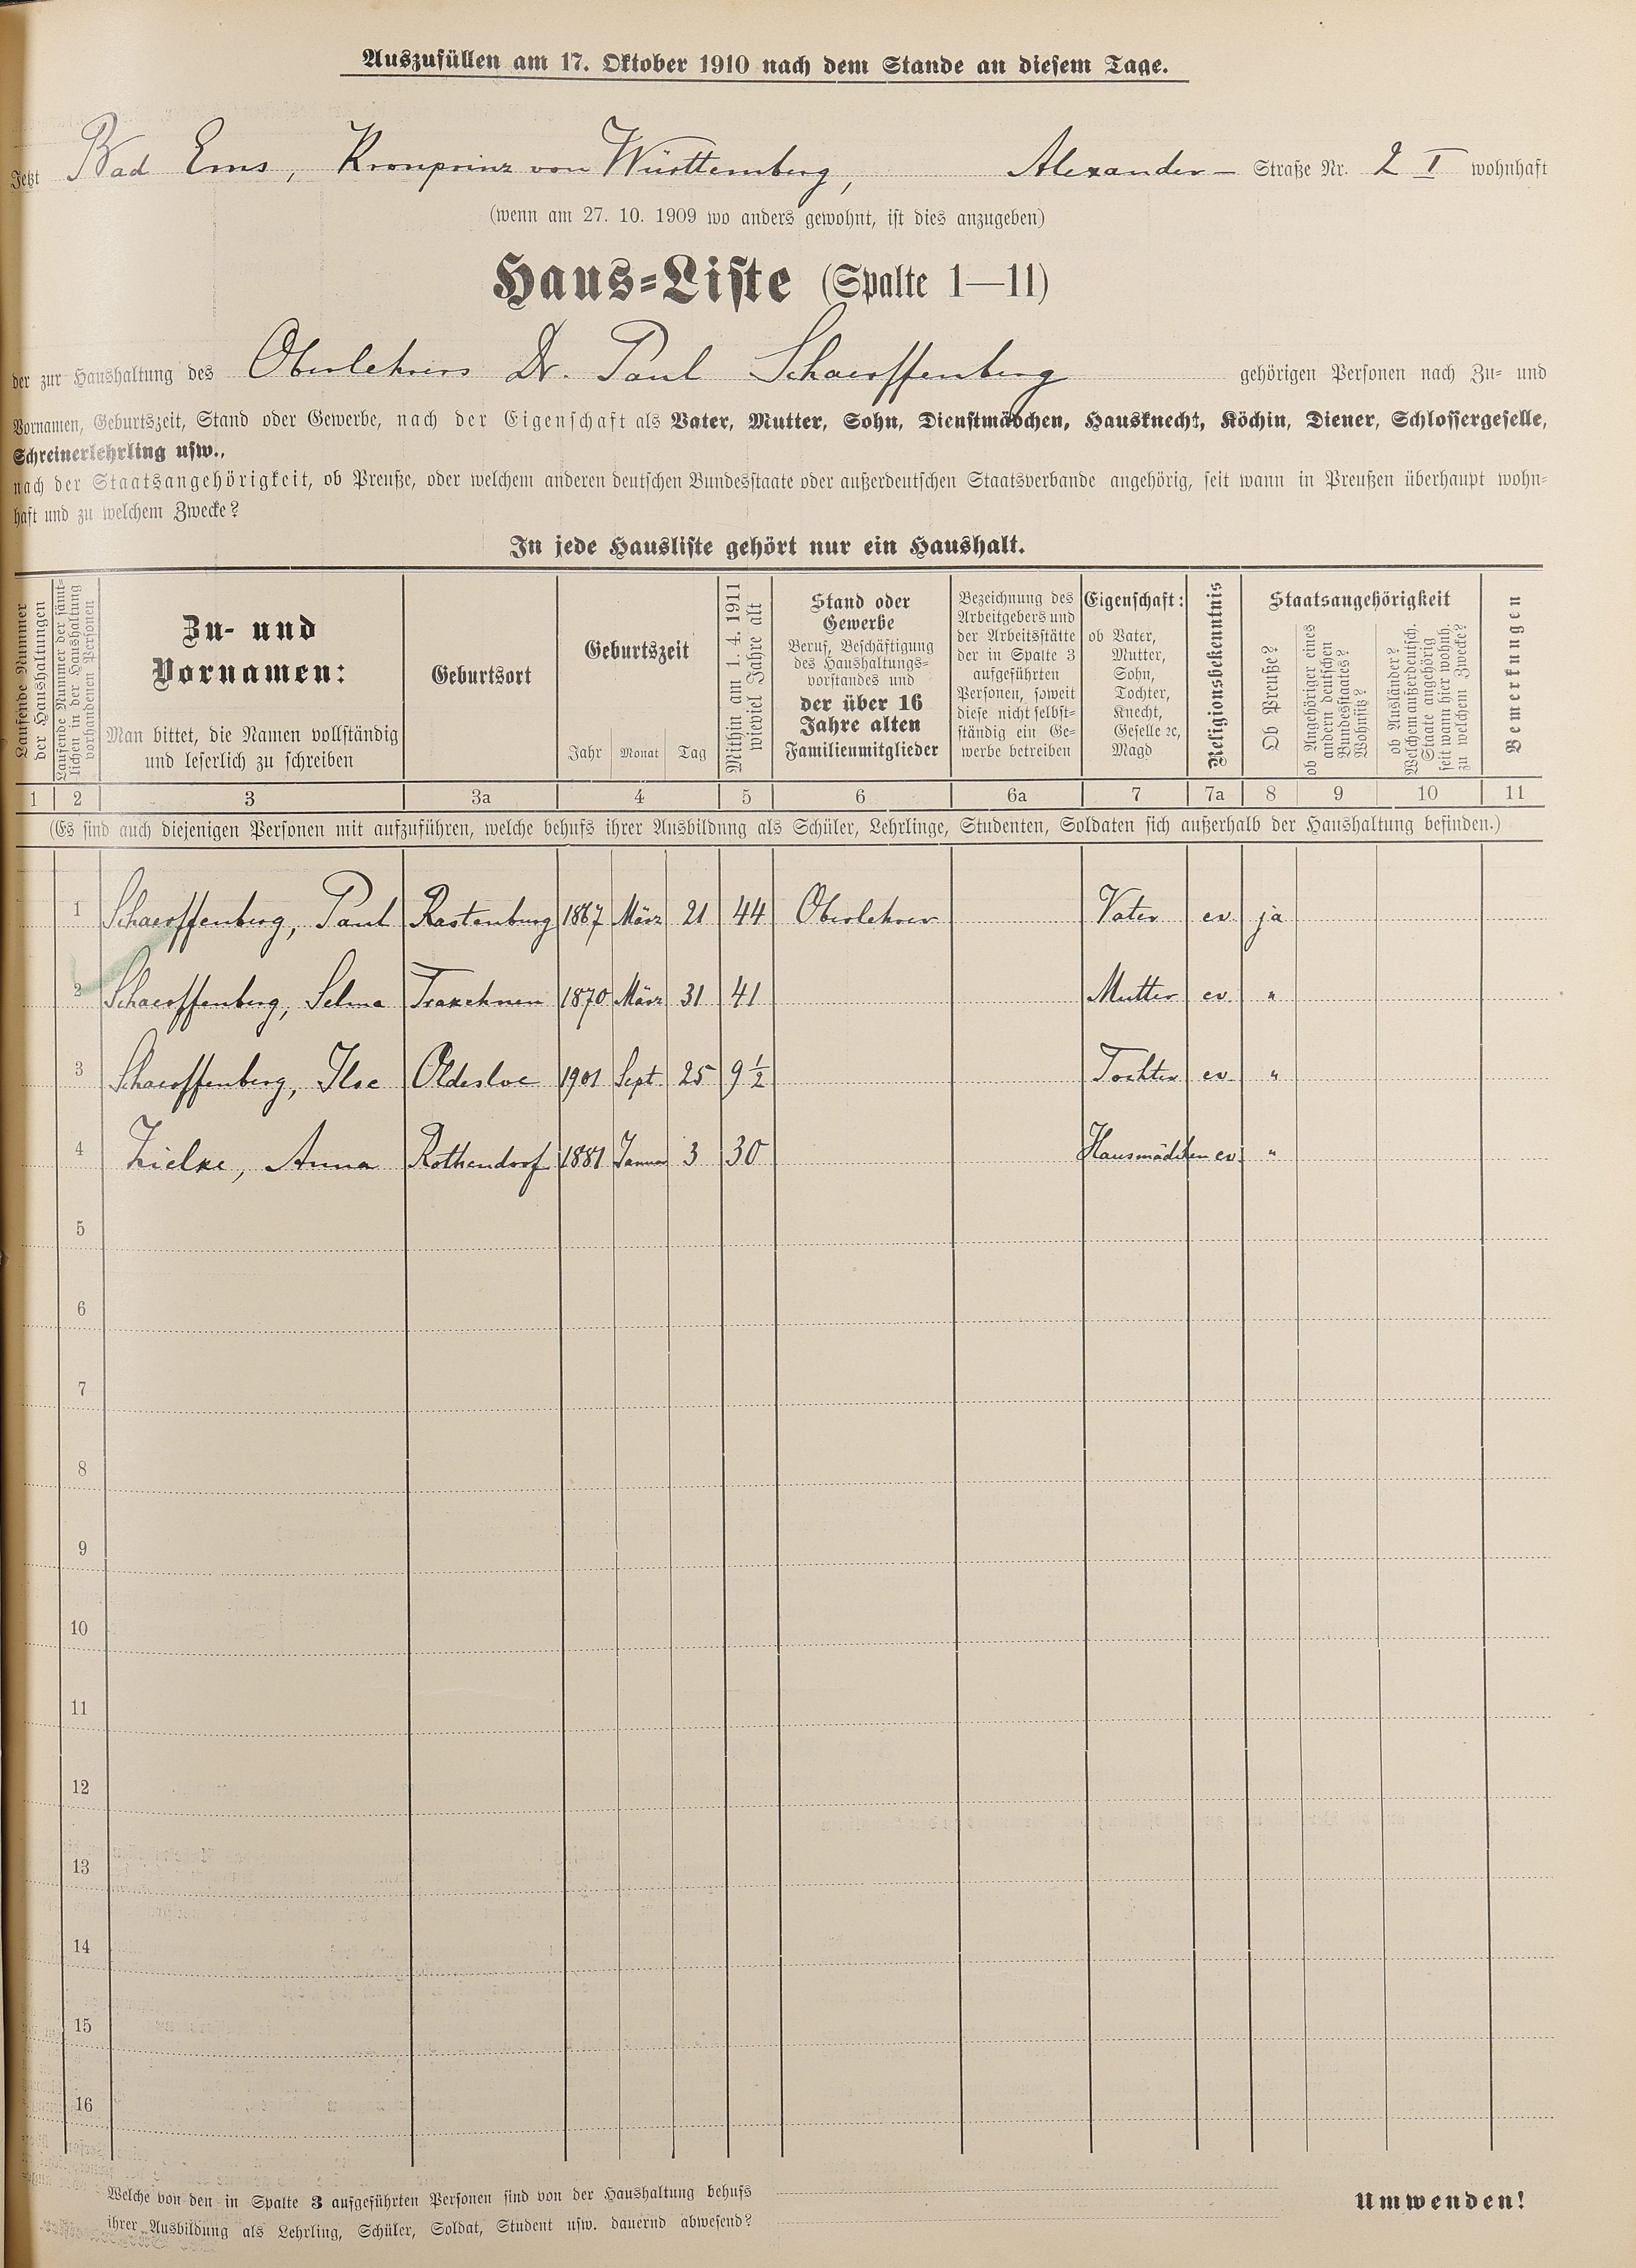 Auszufüllen am 17. Oktober 1910 nach dem Stande an diesem Tage.
Jetzt Bad Ems, Kronprinz von Württemberg, Alexander- Straße Nr. 2 I wohnhaft
(wenn am 27. 10. 1909 wo anders gewohnt, ist dies anzugeben)
Haus-Liste (Spalte 1—11)
der zur Haushaltung des Oberlehrers Dr. Paul Schaerffenberg gehörigen Personen nach Zu- und
Vornamen, Geburtszeit, Stand oder Gewerbe, nach der Eigenschaft als Vater, Mutter, Sohn, Dienstmädchen, Hausknecht, Köchin, Diener, Schlossergeselle,
Schreinerlehrling usw.,
nach der Staatsangehörigkeit, ob Preuße, oder welchem anderen deutschen Bundesstaate oder außerdeutschen Staatsverbande angehörig, seit wann in Preußen überhaupt wohn-
haft und zu welchem Zwecke?
In jede Hausliste gehört nur ein Haushalt.
Laufende Nummer
der Haushaltungen
Laufende Nummer der sämt-
lichen in der Haushaltung
vorhandenen Personen
Zu- und
Vornamen:
Man bittet, die Namen vollständig
und leserlich zu schreiben
Geburtsort
Geburtszeit
Jahr Monat Tag
Mithin am 1. 4. 1911
wieviel Jahre alt
Stand oder
Gewerbe
Beruf, Beschäftigung
des Haushaltungs-
vorstandes und
der über 16
Jahre alten
Familienmitglieder
Bezeichnung des
Arbeitgebers und
der Arbeitsstätte
der in Spalte 3
aufgeführten
Personen, soweit
diese nicht selbst-
ständig ein Ge-
werbe betreiben
Eigenschaft:
ob Vater,
Mutter,
Sohn,
Tochter,
Knecht,
Geselle ꝛc,
Magd
Religionsbekenntnis
Staatsangehörigkeit
Ob Preuße?
ob Angehöriger eines
andern deutschen
Bundesstaates?
Wohnsitz?
ob Ausländer?
Welchem außerdeutsch.
Staate angehörig
seit wann hier wohnh.
zu welchem Zwecke?
Bemerkungen
1 2 3 3a 4 5 6 6a 7 7a 8 9 10 11
(Es sind auch diejenigen Personen mit aufzuführen, welche behufs ihrer Ausbildung als Schüler, Lehrlinge, Studenten, Soldaten sich außerhalb der Haushaltung befinden.)
1 Schaerffenberg, Paul Rastenburg 1867 März 21 44 Oberlehrer Vater ev. ja
2 Schaerffenberg, Selma Trakehnen 1870 März 31 41 Mutter ev. "
3 Schaerffenberg, Ilse Oldesloe 1901 Sept. 25 9 ½ Tochter ev. "
4 Zielke, Anna Rothendorf 1881 Januar 3 30 Hausmädchen ev. "
5
6
7
8
9
10
11
12
13
14
15
16
Welche von den in Spalte 3 aufgeführten Personen sind von der Haushaltung behufs
ihrer Ausbildung als Lehrling, Schüler, Soldat, Student usw. dauernd abwesend?
Umwenden!